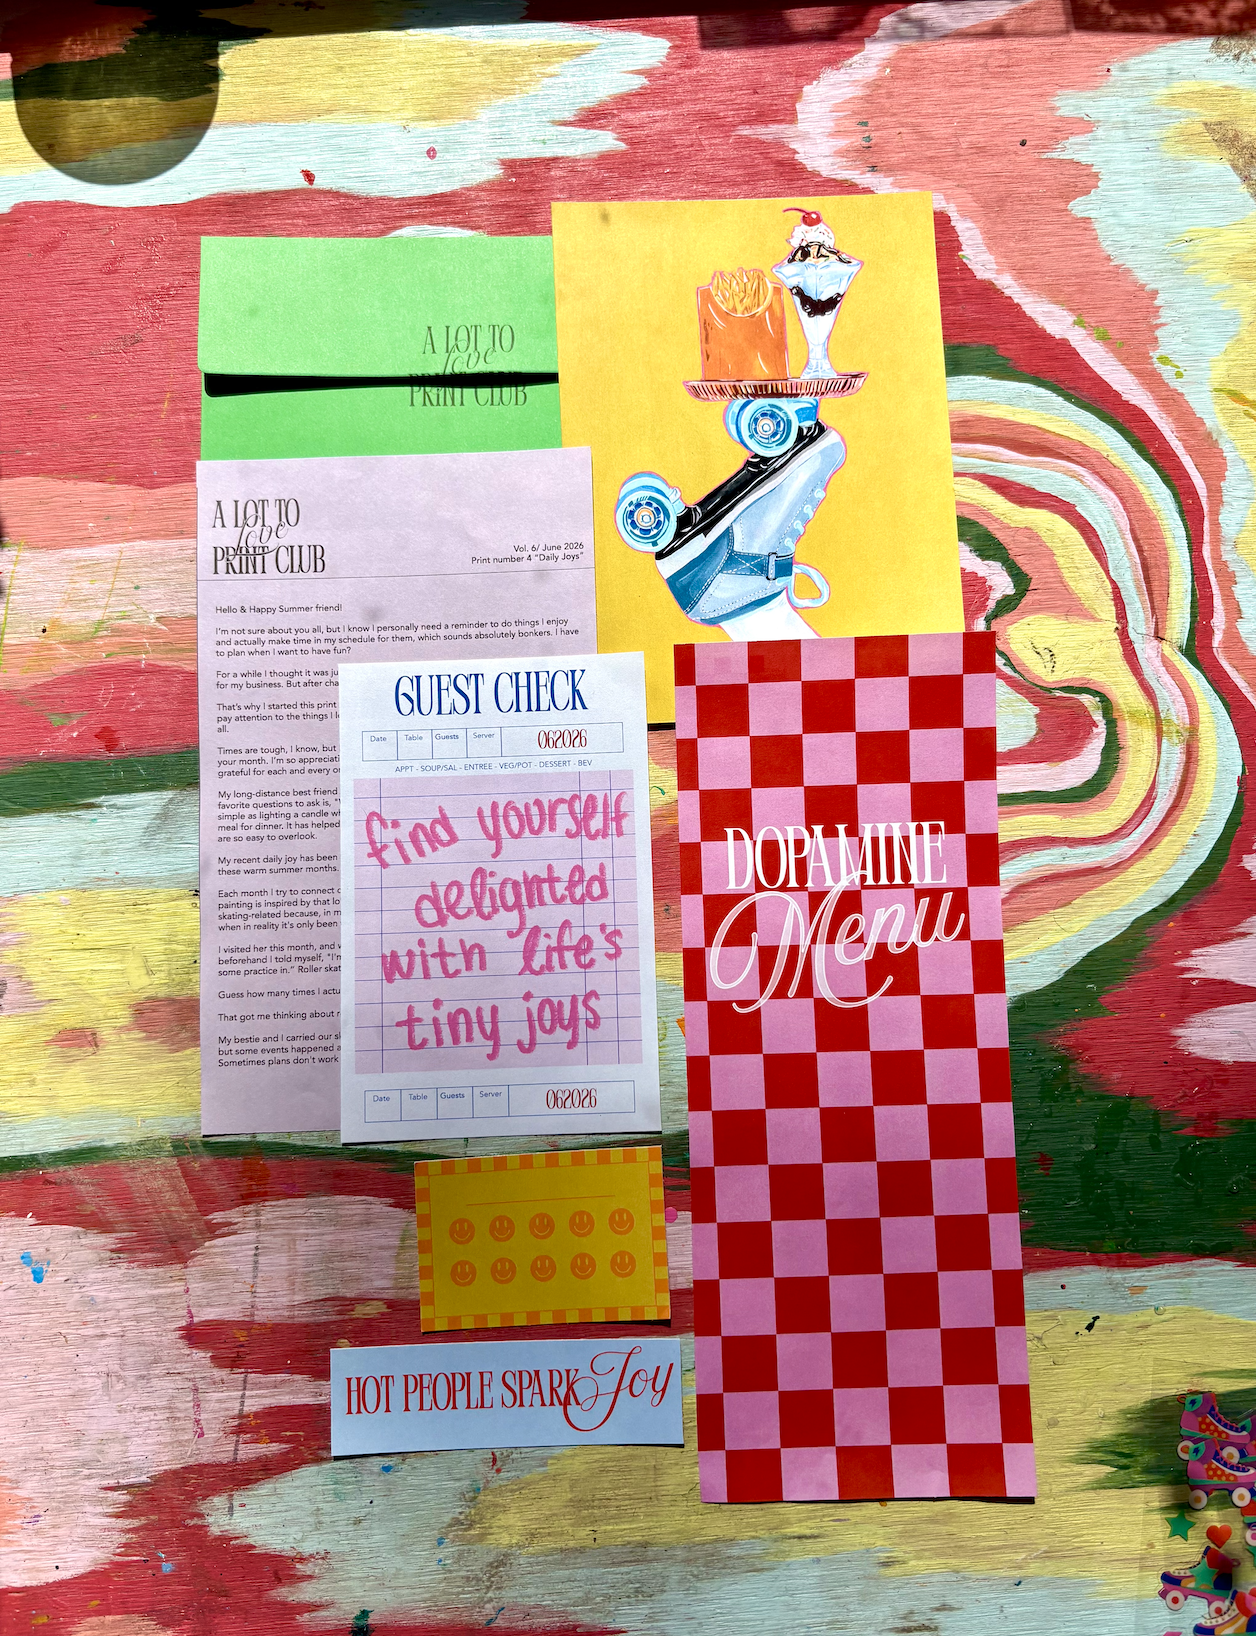 A LOT TO
love
PRINT CLUB
A LOT TO
love
PRINT CLUB
Vol. 6/ June 2026
Print number 4 "Daily Joys"
Hello & Happy Summer friend!
I'm not sure about you all, but I know I personally need a reminder to do things I enjoy
and actually make time in my schedule for them, which sounds absolutely bonkers. I have
to plan when I want to have fun?
For a while I thought it was ju
for my business. But after cha
That's why I started this print
pay attention to the things I l
all.
Times are tough, I know, but
your month. I'm so appreciati
grateful for each and every o
My long-distance best friend
favorite questions to ask is, "
simple as lighting a candle wh
meal for dinner. It has helped
are so easy to overlook.
My recent daily joy has been
these warm summer months.
Each month I try to connect
painting is inspired by that lo
skating-related because, in m
when in reality it's only been
I visited her this month, and
beforehand I told myself, "I'm
some practice in." Roller skat
Guess how many times I actu
That got me thinking about
My bestie and I carried our sk
but some events happened
Sometimes plans don't work
GUEST CHECK
Date Table Guests Server 062026
APPT - SOUP/SAL - ENTREE - VEG/POT - DESSERT - BEV
find yourself
delighted
with life's
tiny joys
Date Table Guests Server 062026
DOPAMINE
Menu
HOT PEOPLE SPARK Joy